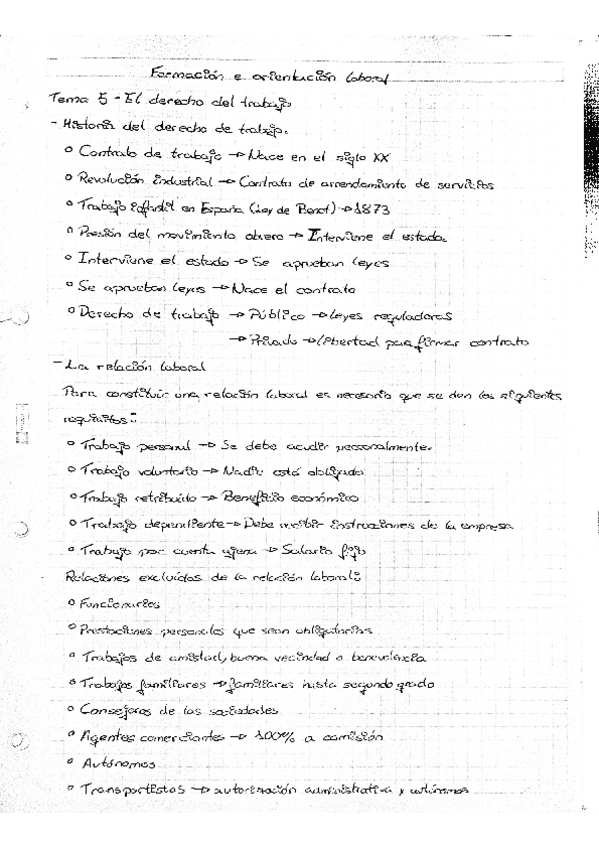 Formación e orientación laboral
Tema 5 - El derecho del trabajo
- Historia del derecho de trabajo.
° Contrato de trabajo → Nace en el siglo XX
° Revolución industrial → Contrato de arrendamiento de servicios
° Trabajo infantil en España (Ley de Benot) → 1873
° Presión del movimiento obrero → Interviene el estado.
° Interviene el estado → Se aprueban leyes
° Se aprueban leyes → Nace el contrato
° Derecho de trabajo → Público → Leyes reguladoras
→ Privado → Libertad para firmar contrato
- La relación laboral
Para constituir una relación laboral es necesario que se den los siguientes
requisitos:
° Trabajo personal → Se debe acudir personalmente.
° Trabajo voluntario → Nadie está obligado
° Trabajo retribuido → Beneficio económico
° Trabajo dependiente → Debe recibir instrucciones de la empresa
° Trabajo por cuenta ajena → Salario fijo
Relaciones excluídas de la relación laboral:
° Funcionarios
° Prestaciones personales que sean obligatorias
° Trabajos de amistad, buena vecindad o benevolencia
° Trabajos familiares → familiares hasta segundo grado
° Consejeros de las sociedades
° Agentes comerciantes → 100% a comisión
° Autónomos
° Transportistas → autorización administrativa y autónomos